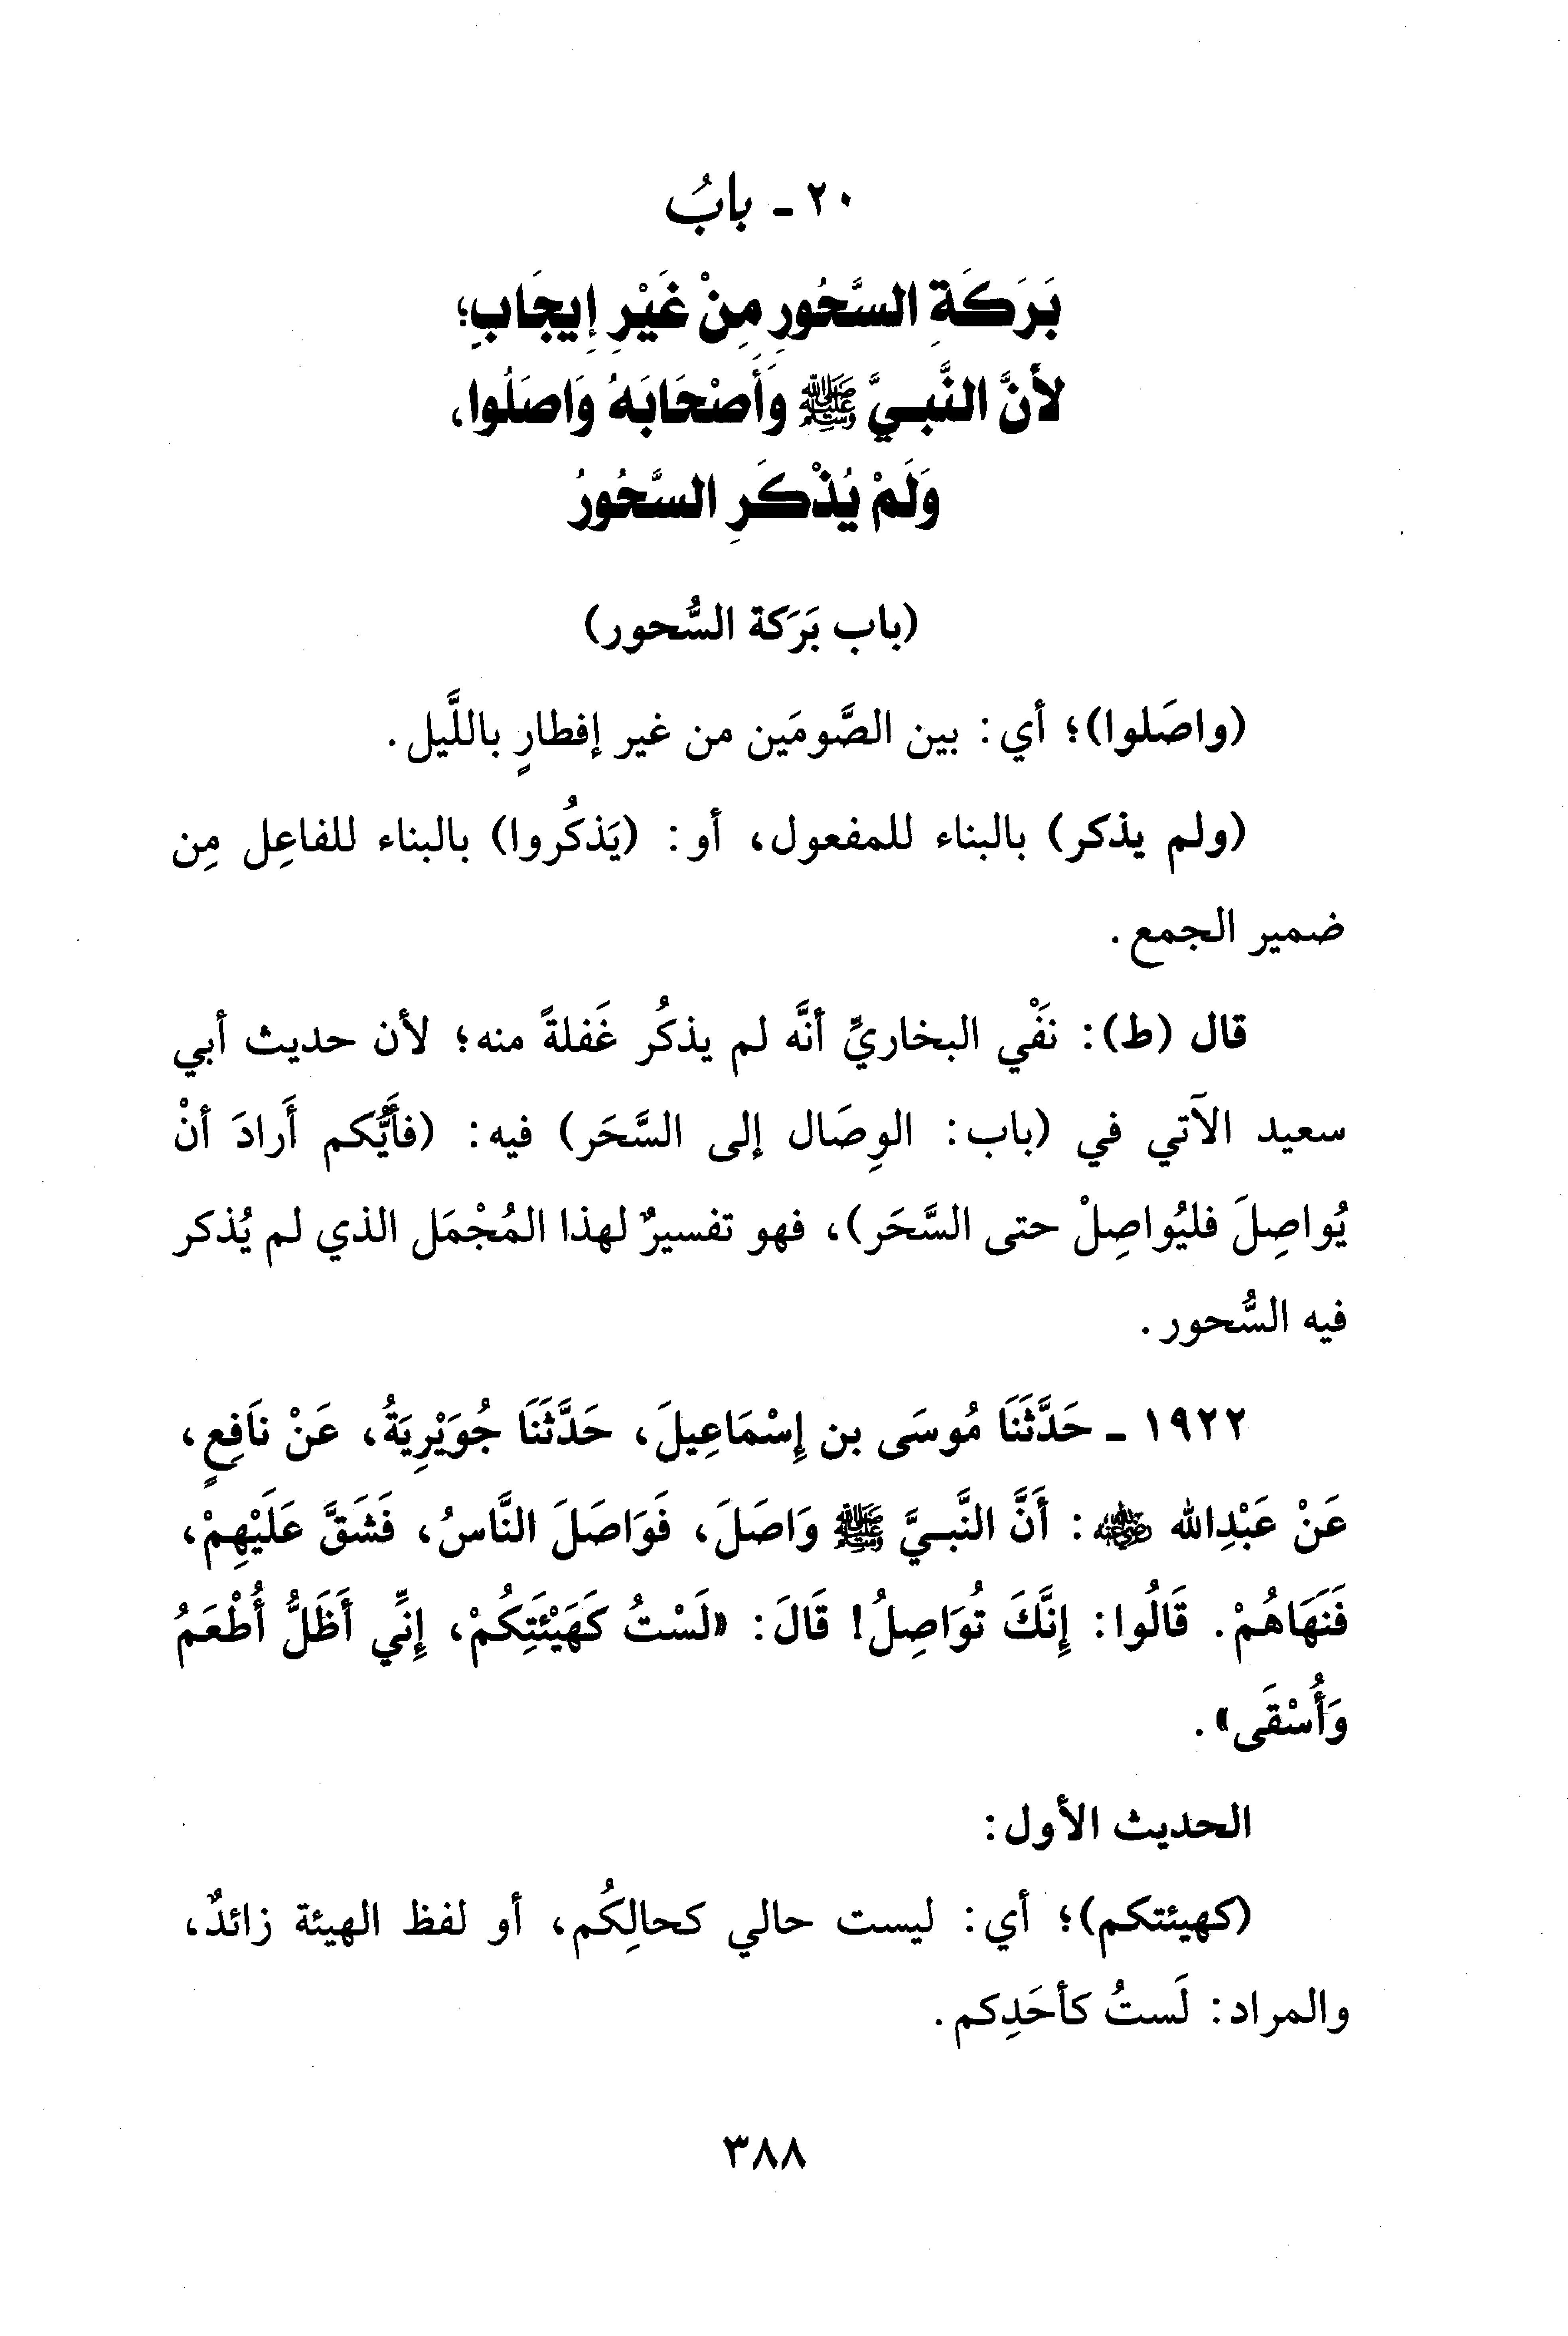 ٢٠ - بابُ
بَرَكَةِ السَّحُورِ مِنْ غَيْرِ إِيجَابٍ؛
لأَنَّ النَّبِيَّ ﷺ وَأَصْحَابَهُ وَاصَلُوا،
وَلَمْ يُذْكَرِ السَّحُورُ
(باب بَرَكة السُّحور)
(واصَلوا)؛ أي: بين الصَّومَين من غير إفطارٍ باللَّيل.
(ولم يذكر) بالبناء للمفعول، أو: (يَذكُروا) بالبناء للفاعِل مِن
ضمير الجمع.
قال (ط): نَفْي البخاريِّ أنَّه لم يذكُر غَفلةً منه؛ لأن حديث أبي
سعيد الآتي في (باب: الوِصَال إلى السَّحَر) فيه: (فأَيُّكم أَرادَ أنْ
يُواصِلَ فليُواصِلْ حتى السَّحَر)، فهو تفسيرٌ لهذا المُجْمَل الذي لم يُذكر
فيه السُّحور.
١٩٢٢ - حَدَّثَنَا مُوسَى بن إِسْمَاعِيلَ، حَدَّثَنَا جُوَيْرِيَةُ، عَنْ نَافِعٍ،
عَنْ عَبْدِالله ﵁: أَنَّ النَّبِيَّ ﷺ وَاصَلَ، فَوَاصَلَ النَّاسُ، فَشَقَّ عَلَيْهِمْ،
فَنَهَاهُمْ. قَالُوا: إِنَّكَ تُوَاصِلُ! قَالَ: «لَسْتُ كَهَيْئَتِكُمْ، إِنِّي أَظَلُّ أُطْعَمُ
وَأُسْقَى».
الحديث الأول:
(كهيئتكم)؛ أي: ليست حالي كحالِكُم، أو لفظ الهيئة زائدٌ،
والمراد: لَستُ كأحَدِكم.
٣٨٨